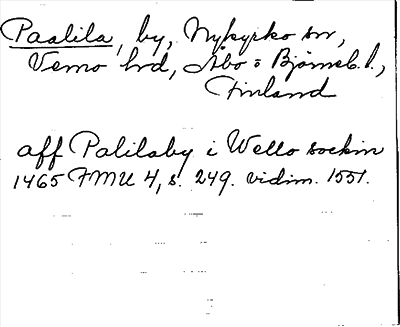 Paalila, by, Nykyrko sn,
Vemo hrd, Åbo o Björneb. l.,
Finland
aff Palilaby i Wello sockin
1465 FMU 4, s. 249. vidim. 1551.